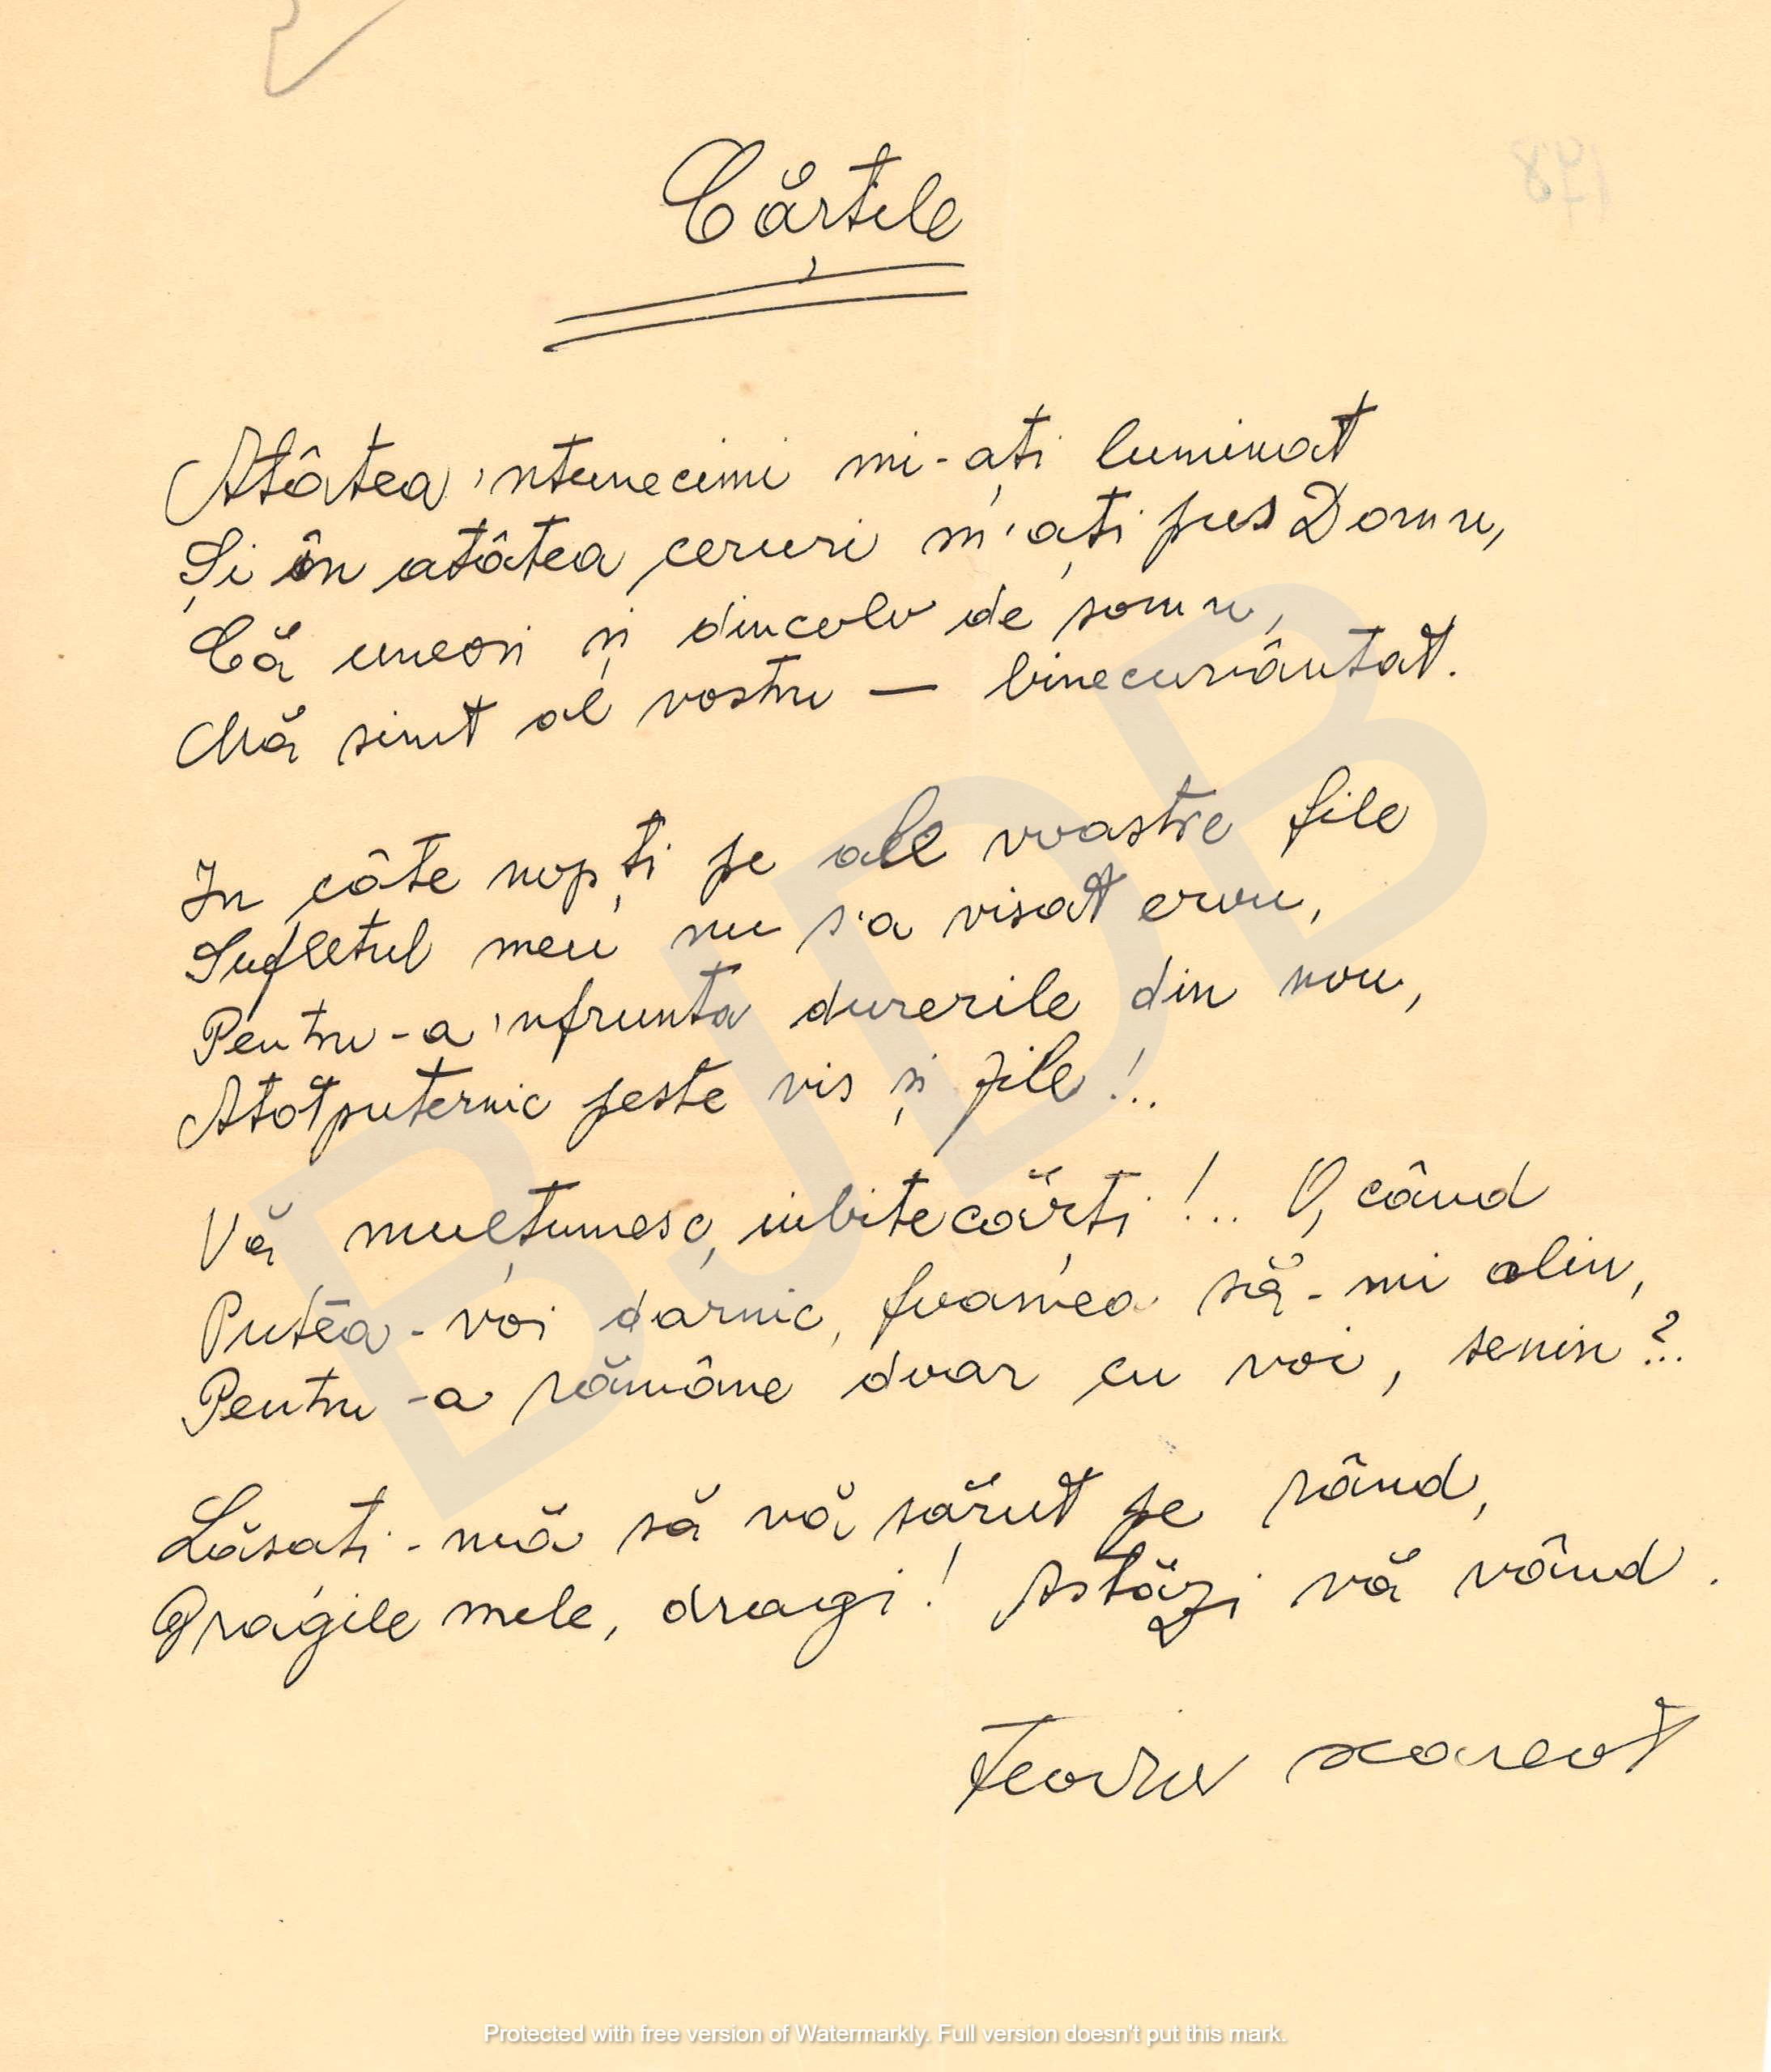 Cărțile
Atâtea 'ntunecimi mi-ați luminat
Și în atâtea ceruri m'ați pus Domn,
Că uneori și dincolo de somn,
Mă simt al vostru — binecuvântat.
In câte nopți pe ale voastre file
Sufletul meu nu s'a visat erou,
Pentru-a 'nfrunta durerile din nou,
Atotputernic peste vis și zile!..
Vă mulțumesc, iubite cărți!.. O, când
Putea-voi darnic, foamea să-mi alin,
Pentru-a rămâne doar cu voi, senin?..
Lăsați-mă să vă sărut pe rând,
Dragile mele, dragi! Astăzi vă vând.
Teodor Scarlat
178
BJDB
Protected with free version of Watermarkly. Full version doesn't put this mark.